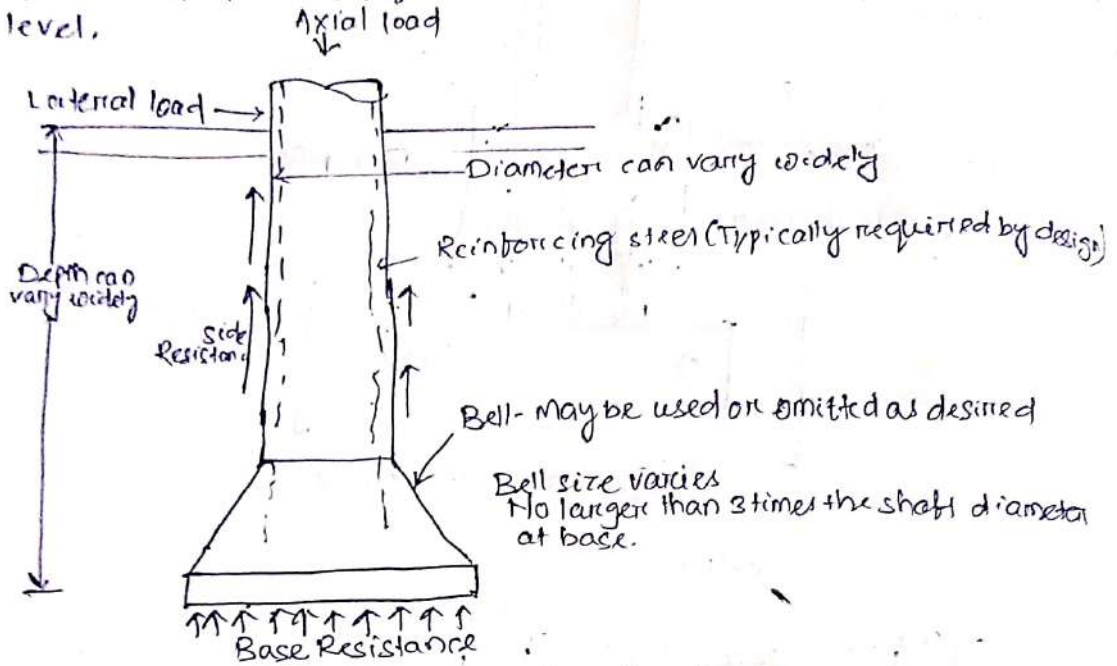 level.
Axial load
Laterial load
Diameter can vary widely
Reinforcing steel (Typically required by design)
Depth can
vary widely
Side
Resistan
Bell- May be used or omitted as desired
Bell size varies
No larger than 3 times the shaft diameter
at base.
Base Resistance